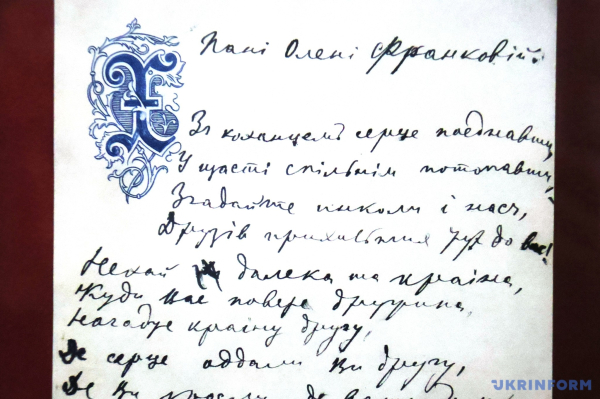 Пані Олені Франковій.
Зъ коханцемъ серце поєднавши,
У щасті спільнім потопавши,
Згадайте инколи і насъ,
Друзів прихильних тут до вас!
Нехай далека та країна,
Куди вас повезе дружина,
Нагадує країну другу,
Де серце оддали Ви другу,
Де Ви
UKRINFORM